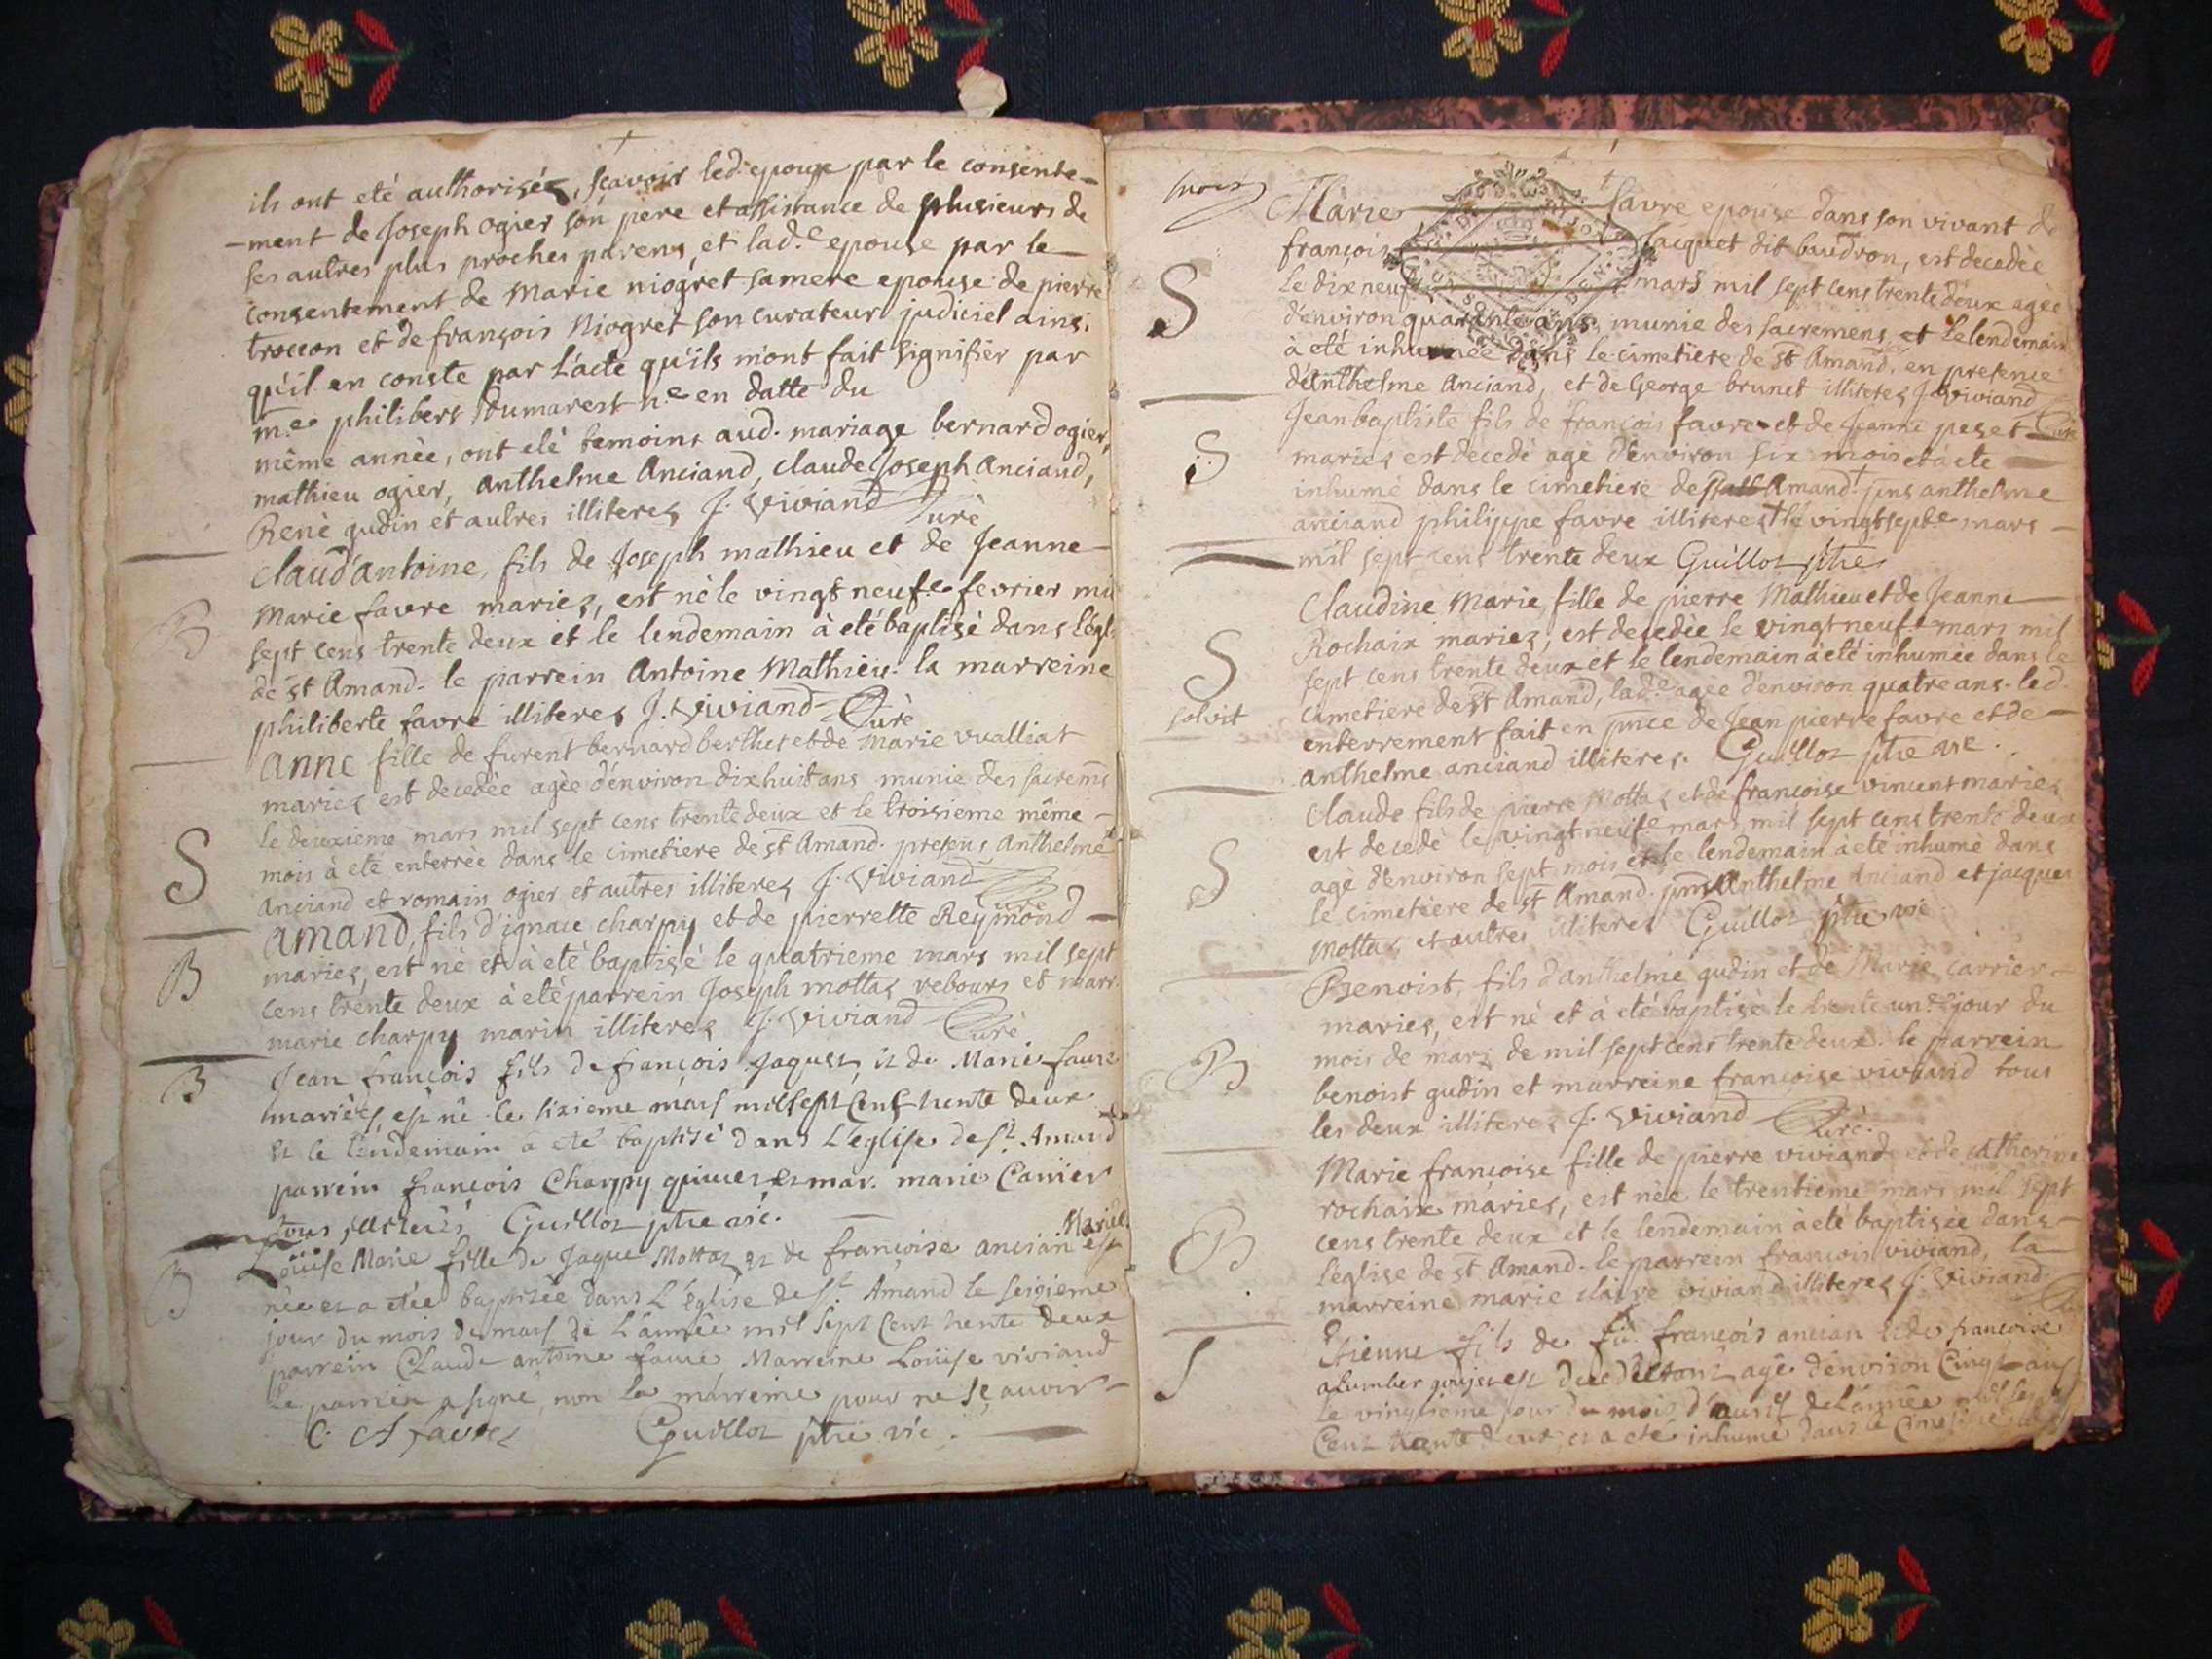 ils ont eté authorisés, sçavoir led. epoux par le consente-
-ment de Joseph ogier son pere et assistance de plusieurs de
ses autres plus proches parens, et lad.e epouse par le
consentement de Marie niogret sa mere epouse de pierre
troccon et de françois Niogret son curateur judiciel ainsi
qu'il en conste par L'acte qu'ils m'ont fait signifier par
m.e philibert Dumarest n.e en datte du
même année, ont eté temoins aud. mariage bernard ogier,
mathieu ogier, anthelme Anciand, claude Joseph Anciand,
Renè gudin et autres illiteres J. Viviand Curè
B
Claud'antoine, fils de Joseph mathieu et de Jeanne
Marie favre mariez, est nè le vingt neuf.e fevrier mil
sept cens trente deux et le lendemain à eté baptisè dans l'égl.
de st Amand. le parrein Antoine Mathieu. la marreine
philiberte favre illiteres J. Viviand Curè
S
Anne fille de furent bernard berthet et de Marie vualliat
mariez est decedée agèe d'environ dix huit ans munie des sacremens
le deuxieme mars mil sept cens trente deux et le troisieme même
mois à eté enterrèe dans le cimetiere de st Amand. presens Anthelme
Anciand et romain ogier et autres illiteres J. Viviand Curè
B
Amand, fils d'ignace charpy et de pierrette Reymond
mariez, est nè et à eté baptisè le quatrieme mars mil sept
cens trente deux à eté parrein Joseph mottaz rebours et marr.
marie charpy marin illiteres J. Viviand Curè
B
Jean françois fils de françois Jaquet, et de Marie faure
mariées, est né le sixieme mars mil sept cent trente deux
et le lendemain a eté baptisé dans L'eglise de st. Amand
parrein françois Charpy et mar. marie Carrier
tous illiterés Guillot ptre vic.
B
Loüise Marie fille de Jaque Mottaz et de françoise ancian Mariés est
née et a etée baptisée dans L'église de st. Amand le seisieme
jour du mois de mars de L'année mil sept cent trente deux
parrein Claude antoine faure Marreine Loüise viviand
le parrein a signé, non la marreine pour ne sçavoir
C. A favre Guillot ptre vic.
Marie favre epouse dans son vivant de
françois Jacquet dit baudron, est decedèe
S
le dix neuf mars mil sept cens trente deux agèe
d'environ quarante ans, munie des sacremens, et le lendemain
à eté inhumée dans le cimetiere de st Amand, en presence
d'Anthelme Anciand, et de George brunet illiteres J. Viviand Curè
S
Jean baptiste fils de françois favre et de Jeanne peset
mariez est decedè agè d'environ six mois et à eté
inhumè dans le cimetiere de st Amand. † pns anthelme
anciand philippe favre illiteres † le vingt sept.e mars
mil sept cens trente deux Guillot ptre
S
solvit
Claudine Marie, fille de pierre Mathieu et de Jeanne
Rochaix mariez, est decedèe le vingt neuf.e mars mil
sept cens trente deux et le lendemain à eté inhumèe dans le
cimetiere de st Amand, lad.e agèe d'environ quatre ans. led.
enterrement fait en pnce de Jean pierre favre et de
anthelme anciand illiteres. Guillot ptre vic.
S
Claude fils de pierre Mottaz et de françoise vincent mariez
est decedè le vingt neuf.e mars mil sept cens trente deux
agè d'environ sept mois et le lendemain à eté inhumè dans
le cimetiere de st Amand. pns Anthelme Anciand et jacques
Mottaz et autres illiteres Guillot ptre vic
B
Benoist, fils d'anthelme gudin et de Marie carrier
mariez, est nè et à eté baptisè le trente un.e jour du
mois de mars de mil sept cens trente deux. le parrein
benoist gudin et marreine françoise viviand tous
les deux illiteres J. Viviand Curè.
B
Marie françoise fille de pierre viviand et de catherine
rochaix mariez, est nèe le trentieme mars mil sept
cens trente deux et le lendemain à eté baptisèe dans
l'église de st Amand. le parrein françois viviand, la
marreine marie claire viviand illiteres J. Viviand
S
Etienne fils de fû françois ancian et de françoise
est decedé agé d'environ Cinq ans
le vingtieme jour du mois d'avril de L'année mil sept
Cent trente deux, et a eté inhumé dans le Cimetiere